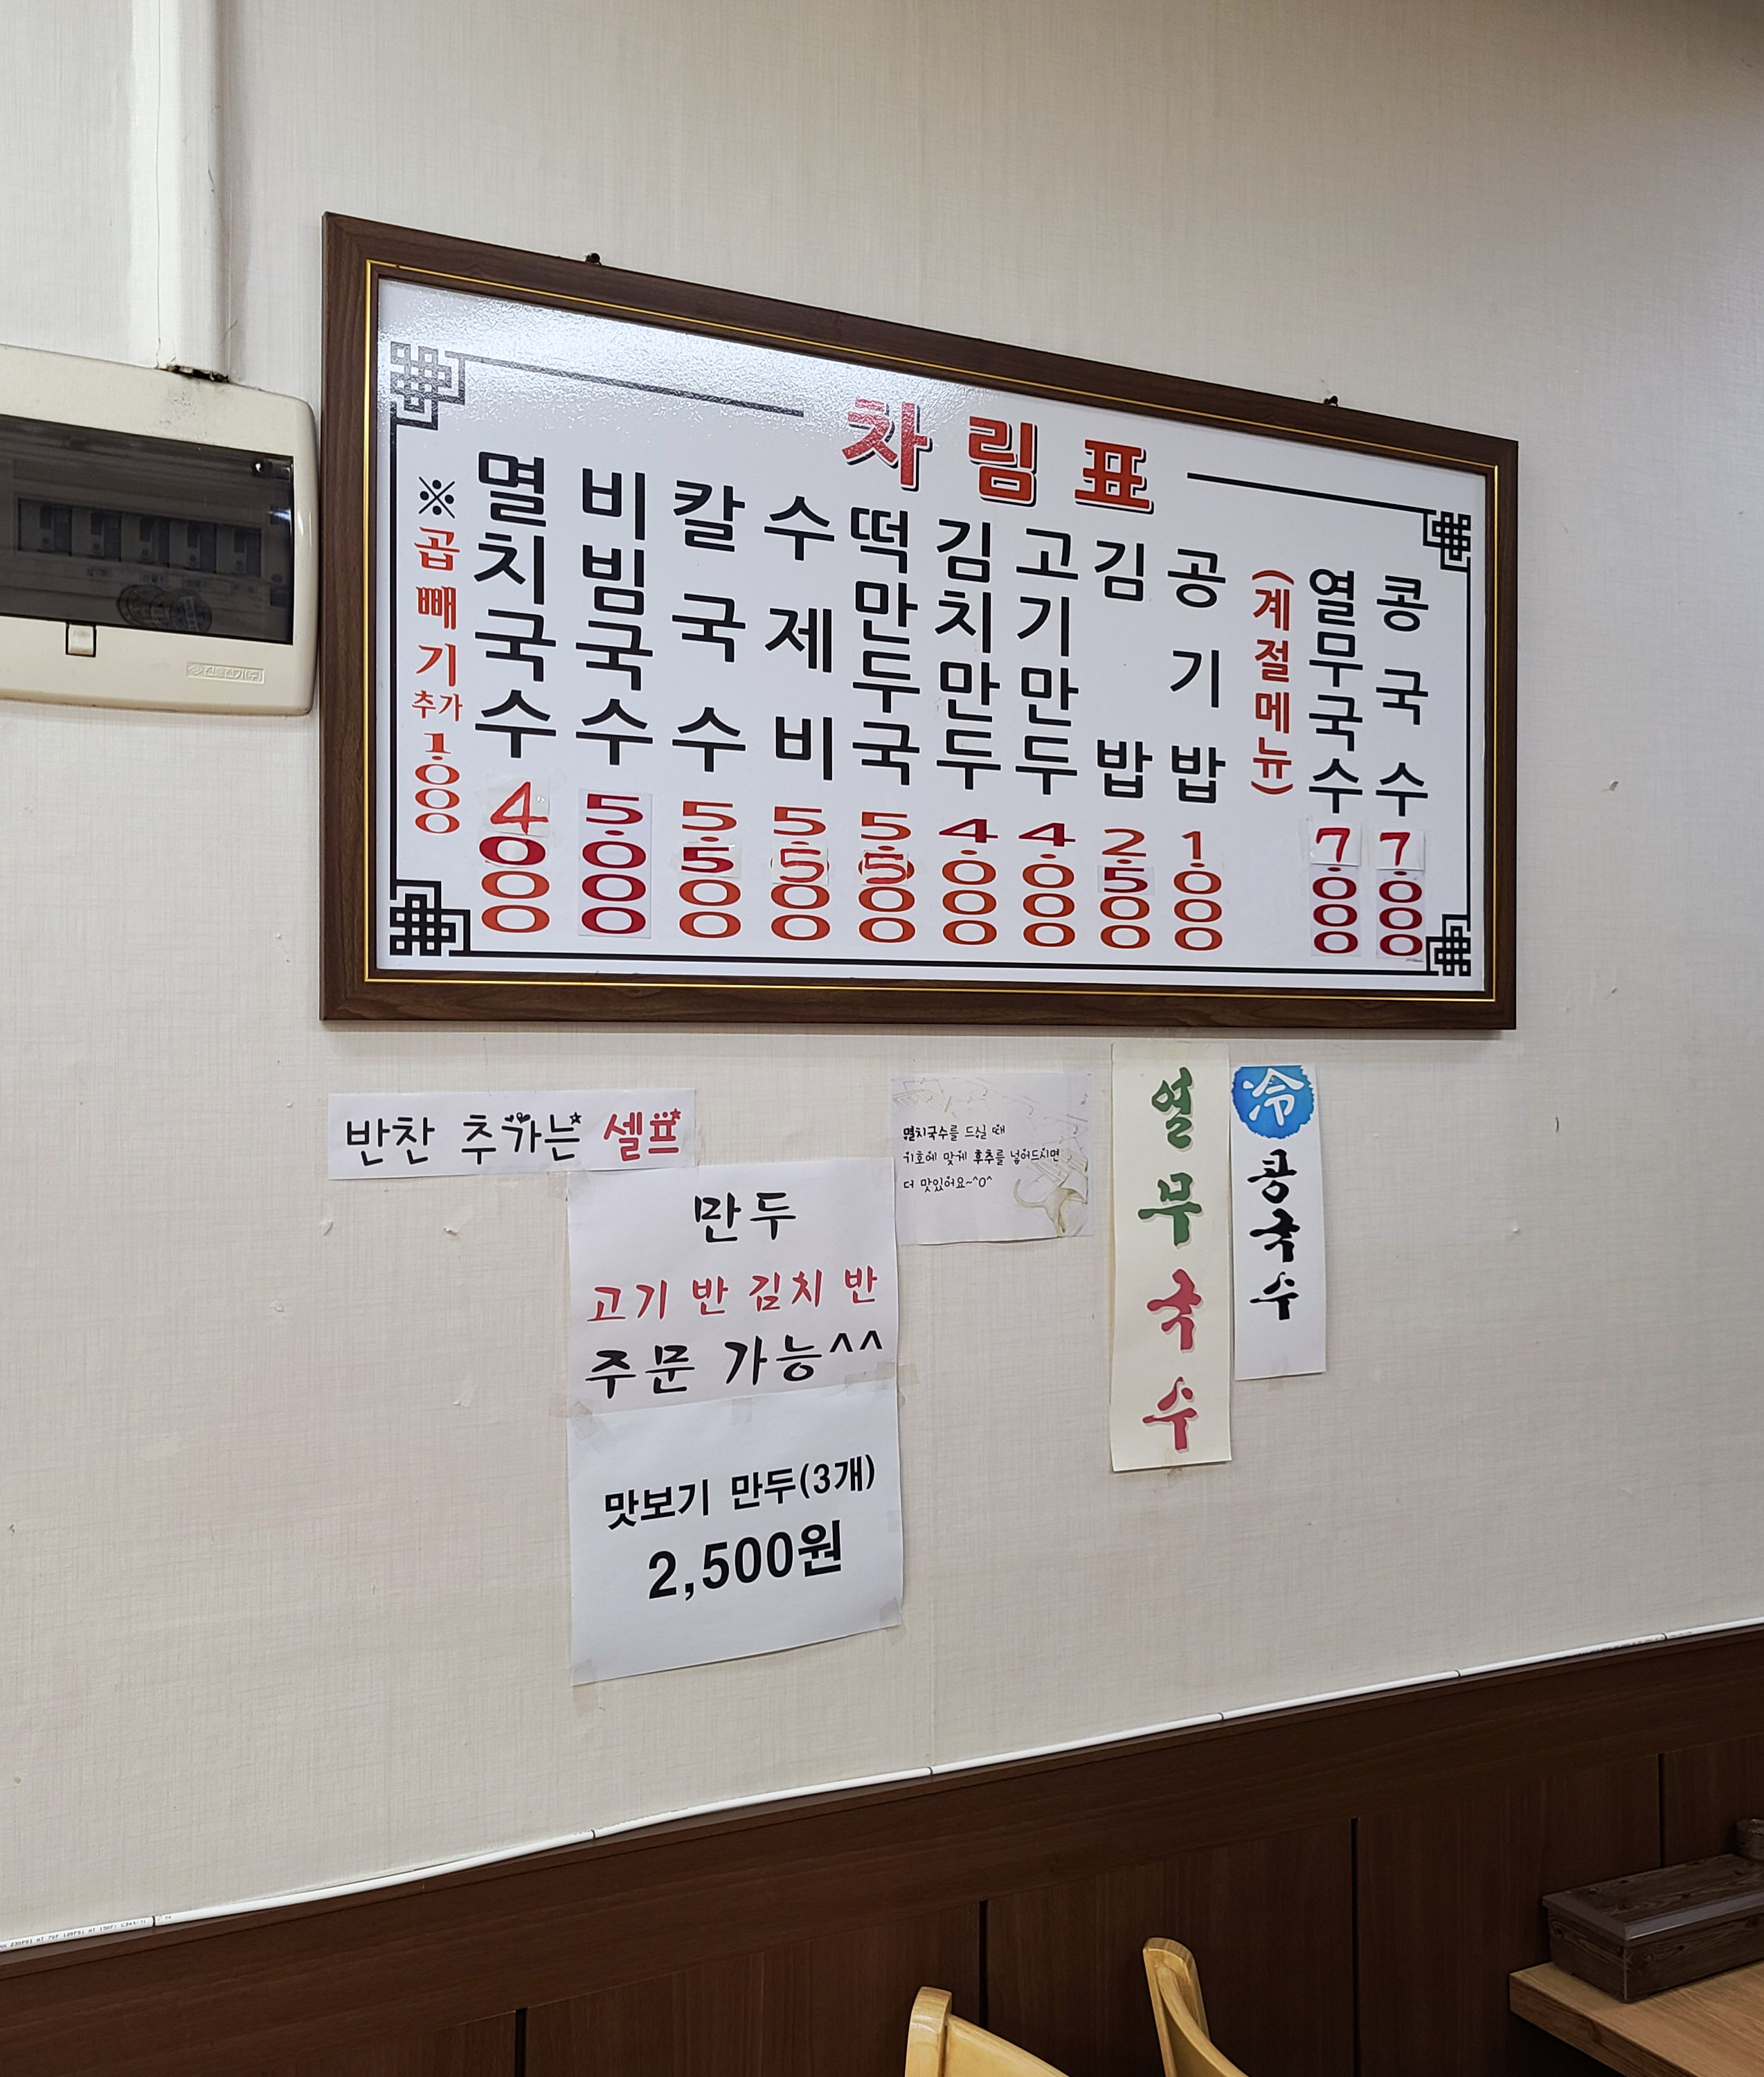 차림표
※곱빼기추가 1.000
멸치국수 4.000
비빔국수 5.000
칼국수 5.500
수제비 5.500
떡만두국 5.500
김치만두 4.000
고기만두 4.000
김밥 2.500
공기밥 1.000
(계절메뉴)
열무국수 7.000
콩국수 7.000
반찬 추가는 셀프
만두
고기 반 김치 반
주문 가능^^
맛보기 만두(3개)
2,500원
멸치국수를 드실 때
기호에 맞게 후추를 넣어드시면
더 맛있어요~^0^
열무국수
冷
콩국수